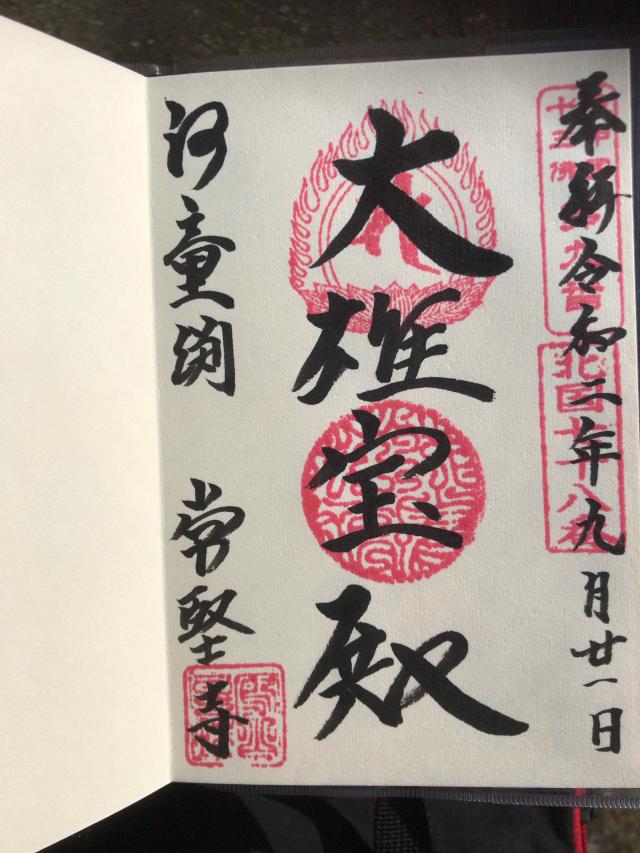 奉拝 令和二年九月廿一日
大雄宝殿
河童渕 常堅寺